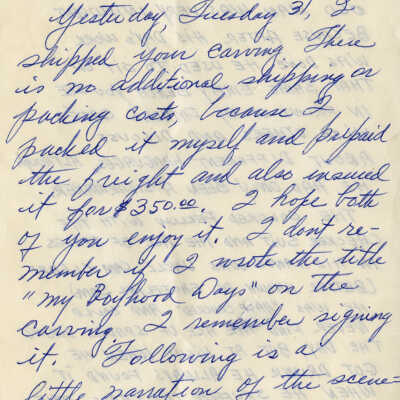 Yesterday, Tuesday 31, I
shipped your carving. There
is no additional shipping or
packing costs, because I
packed it myself and prepaid
the freight and also insured
it for $350.00. I hope both
of you enjoy it. I don't re-
member if I wrote the title
"My Boyhood Days" on the
carving. I remember signing
it. Following is a
little narration of the scene-